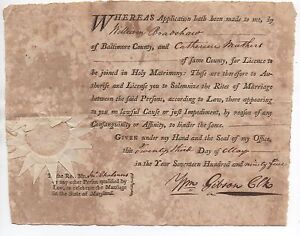 WHEREAS Application hath been made to me, by
William Bradshaw
of Baltimore County, and Catherine Mathers
of same County, for Licence to
be joined in Holy Matrimony: These are therefore to Au-
thorise and License you to Solemnize the Rites of Marriage
between the said Persons, according to Law, there appearing
to you no lawful Cause or just Impediment, by reason of any
Consanguinity or Affinity, to hinder the same.
GIVEN under my Hand and the Seal of my Office,
this Twenty Third Day of May
in the Year Seventeen Hundred and ninety five
Wm Gibson Clk
To the Rev. Mr.
or any other Person qualified by
Law, to celebrate the Marriage
in the State of Maryland.